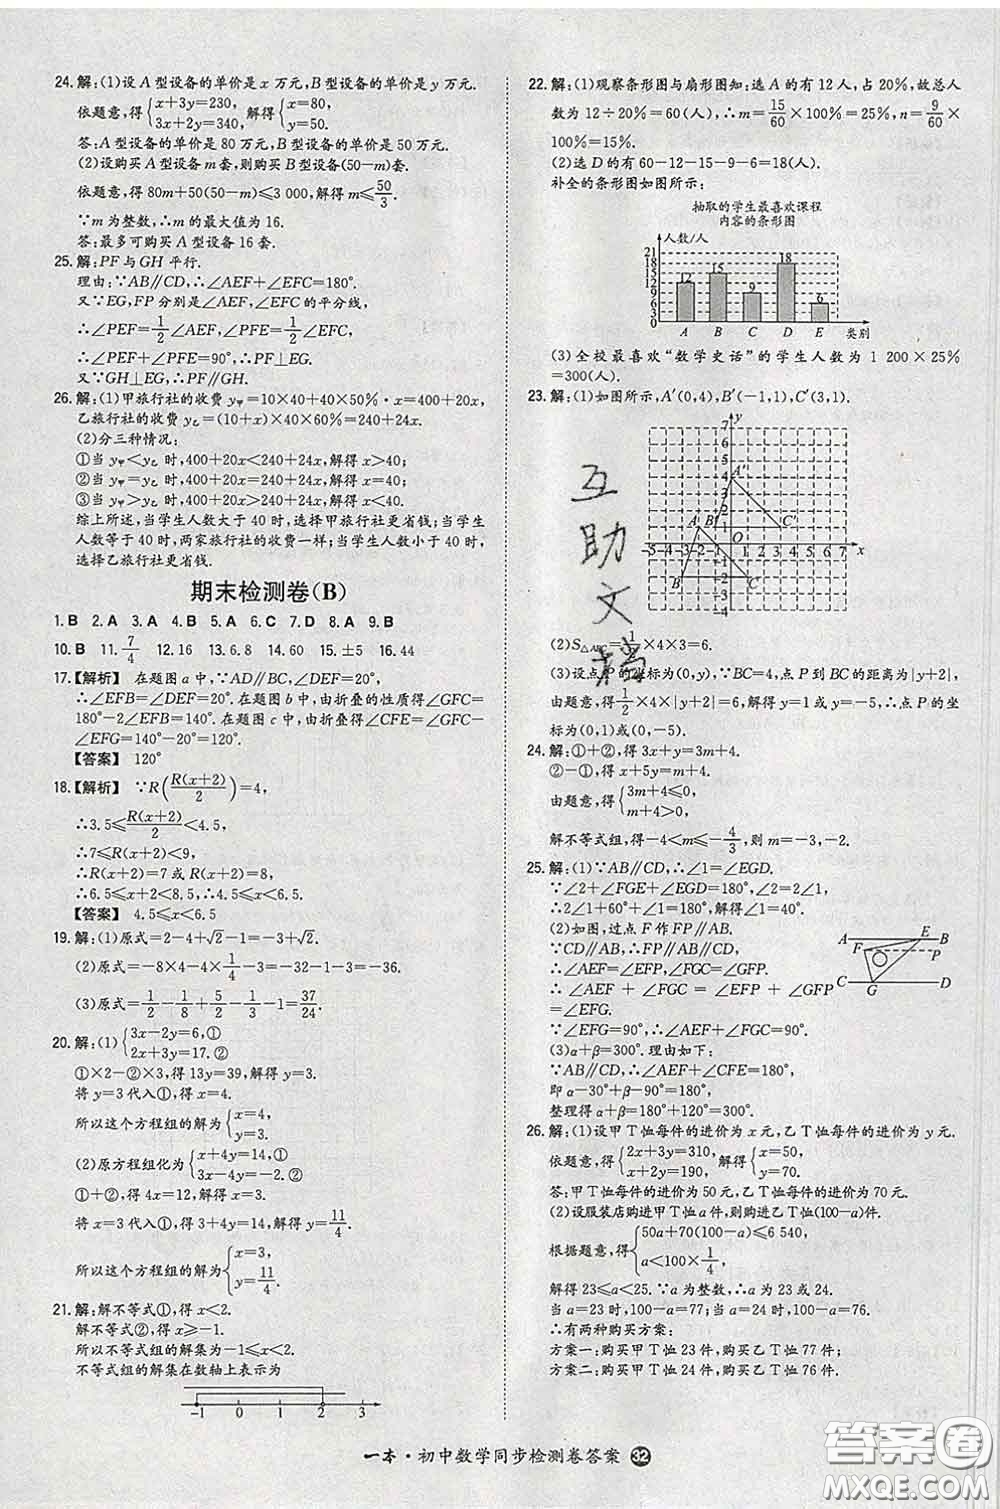 24.解:(1)设A型设备的单价是x万元,B型设备的单价是y万元.
依题意,得{x+3y=230, 3x+2y=340, 解得{x=80, y=50.
答:A型设备的单价是80万元,B型设备的单价是50万元.
(2)设购买A型设备m套,则购买B型设备(50-m)套.
依题意,得80m+50(50-m)≤3 000,解得m≤50/3.
∵m为整数,∴m的最大值为16.
答:最多可购买A型设备16套.
25.解:PF与GH平行.
理由:∵AB∥CD,∴∠AEF+∠EFC=180°.
又∵EG,FP分别是∠AEF,∠EFC的平分线,
∴∠PEF=1/2∠AEF,∠PFE=1/2∠EFC,
∴∠PEF+∠PFE=90°,∴PF⊥EG.
又∵GH⊥EG,∴PF∥GH.
26.解:(1)甲旅行社的收费y甲=10×40+40×50%·x=400+20x,
乙旅行社的收费y乙=(10+x)×40×60%=240+24x.
(2)分三种情况:
①当y甲<y乙时,400+20x<240+24x,解得x>40;
②当y甲=y乙时,400+20x=240+24x,解得x=40;
③当y甲>y乙时,400+20x>240+24x,解得x<40.
综上所述,当学生人数大于40时,选择甲旅行社更省钱;当学生
人数等于40时,两家旅行社的收费一样;当学生人数小于40时,
选择乙旅行社更省钱.
期末检测卷(B)
1.B 2.A 3.A 4.B 5.A 6.C 7.D 8.A 9.B
10.B 11.7/4 12.16 13.6.8 14.60 15.±5 16.44
17.【解析】 在题图a中,∵AD∥BC,∠DEF=20°,
∴∠EFB=∠DEF=20°.在题图b中,由折叠的性质得∠GFC=
180°-2∠EFB=140°.在题图c中,由折叠得∠CFE=∠GFC-
∠EFG=140°-20°=120°.
【答案】 120°
18.【解析】 ∵R(R(x+2)/2)=4,
∴3.5≤R(x+2)/2<4.5,
∴7≤R(x+2)<9,
∴R(x+2)=7或R(x+2)=8,
∴6.5≤x+2<8.5,∴4.5≤x<6.5.
【答案】 4.5≤x<6.5
19.解:(1)原式=2-4+√2-1=-3+√2.
(2)原式=-8×4-4×1/4-3=-32-1-3=-36.
(3)原式=1/2-1/8+5/2-1/3-1=37/24.
20.解:(1){3x-2y=6,① 2x+3y=17.②
①×2-②×3,得13y=39,解得y=3.
将y=3代入①,得x=4,
所以这个方程组的解为{x=4, y=3.
(2)原方程组化为{x+4y=14,① 3x-4y=-2.②
①+②,得4x=12,解得x=3.
将x=3代入①,得3+4y=14,解得y=11/4,
所以这个方程组的解为{x=3, y=11/4.
21.解:解不等式①,得x<2.
解不等式②,得x≥-1.
所以不等式组的解集为-1≤x<2.
不等式组的解集在数轴上表示为
-1 0 1 2 3
22.解:(1)观察条形图与扇形图知:选A的有12人,占20%,故总人
数为12÷20%=60(人),∴m=15/60×100%=25%,n=9/60
×100%=15%.
(2)选D的有60-12-15-9-6=18(人).
补全的条形图如图所示:
抽取的学生最喜欢课程
内容的条形图
人数/人
21
18
15
12
9
6
3
0
12 15 9 18 6
A B C D E 类别
(3)全校最喜欢“数学史话”的学生人数为1 200×25%
=300(人).
23.解:(1)如图所示,A′(0,4),B′(-1,1),C′(3,1).
y
7
6
5
4
3
2
1
A′
A B′ C′
O
-5-4-3-2-1 1 2 3 4 5 6 7 x
B C
-1
-2
-3
-4
(2)S△ABC=1/2×4×3=6.
(3)设点P的坐标为(0,y),∵BC=4,点P到BC的距离为|y+2|,
由题意,得1/2×4×|y+2|=6,解得y=1或y=-5,∴点P的坐
标为(0,1)或(0,-5).
24.解:①+②,得3x+y=3m+4.
②-①,得x+5y=m+4.
由题意,得{3m+4≤0, m+4>0,
解不等式组,得-4<m≤-4/3,则m=-3,-2.
25.解:(1)∵AB∥CD,∴∠1=∠EGD.
∵∠2+∠FGE+∠EGD=180°,∠2=2∠1,
∴2∠1+60°+∠1=180°,解得∠1=40°.
(2)如图,过点F作FP∥AB.
∵CD∥AB,∴FP∥AB∥CD.
∴∠AEF=∠EFP,∠FGC=∠GFP.
∴∠AEF+∠FGC=∠EFP+∠GFP
=∠EFG.
∵∠EFG=90°,∴∠AEF+∠FGC=90°.
A E B
F P
C G D
(3)α+β=300°.理由如下:
∵AB∥CD,∴∠AEF+∠CFE=180°,
即α-30°+β-90°=180°,
整理得α+β=180°+120°=300°.
26.解:(1)设甲T恤每件的进价为x元,乙T恤每件的进价为y元.
依题意,得{2x+3y=310, x+2y=190, 解得{x=50, y=70.
答:甲T恤每件的进价为50元,乙T恤每件的进价为70元.
(2)设服装店购进甲T恤a件,则购进乙T恤(100-a)件.
根据题意,得{50a+70(100-a)≤6540, a<100×1/4,
解得23≤a<25.∵a为整数,∴a为23或24.
当a=23时,100-a=77;当a=24时,100-a=76.
∴有两种购买方案:
方案一:购买甲T恤23件,购买乙T恤77件;
方案二:购买甲T恤24件,购买乙T恤76件.
互助文档
一本·初中数学同步检测卷答案 32
答案圈
MXQE.COM